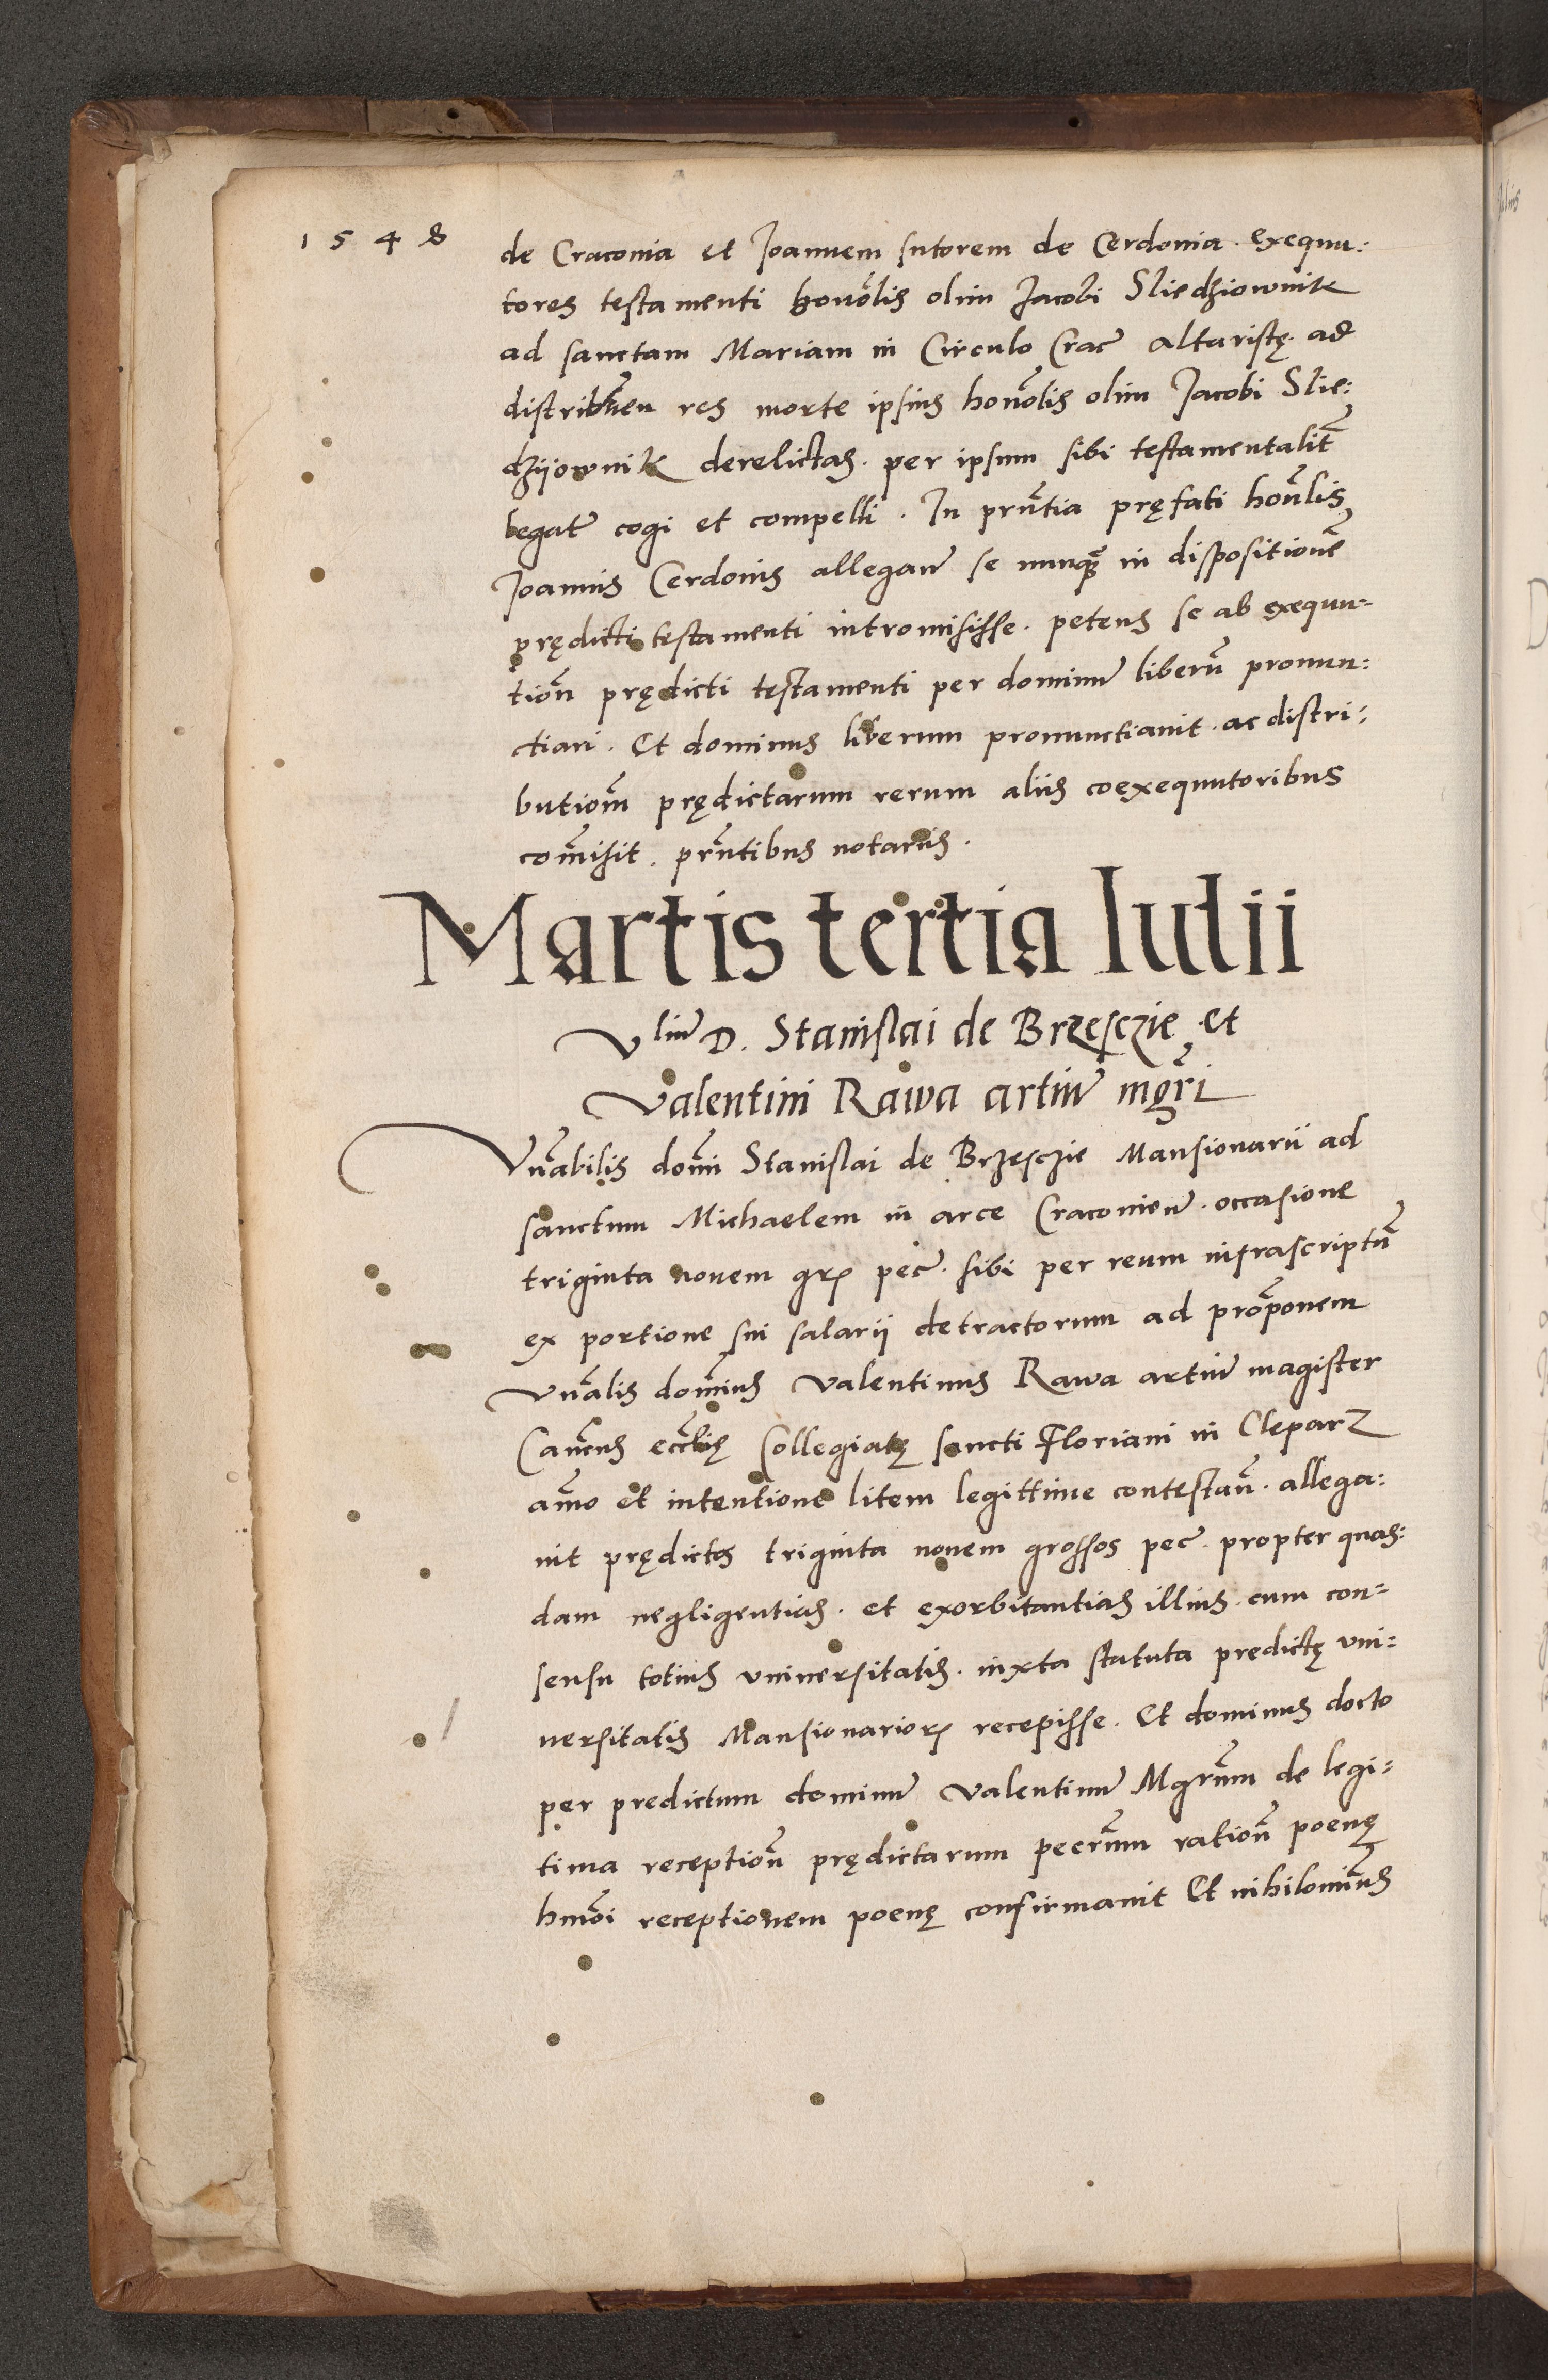 1548
de Craconia et Joannem sutorem de Cerdonia. exequu:
tores testamenti honõlis olim Jacobi Sliedziownik
ad sanctam Mariam in Circulo Crac̃ altaristę. ad
distribuẽn res morte ipsius honõlis olim Jacobi Slie:
dzijownik derelictas. per ipsum sibi testamentalit̃
legat̃ cogi et compelli. In prñtia pręfati hoñlis
Joannis Cerdonis allegan̄ se nunq̃ in dispositionẽ
prędicti testamenti intromisisse. petens se ab exequu=
tioñ prędicti testamenti per dominũ liberũ pronun:
ctiari. Et dominus liberum pronunctiavit. ac distri:
butiom̃ prędictarum rerum aliis coexequutoribus
com̃isit. prñtibus notariis.
Martis tertia Iulii
Vliũ D. Stanislai de Brzesczie et
Valentini Rawa artiũ mgr̃i
Vñabilis dom̃i Stanislai de Brzesczie Mansionarii ad
sanctum Michaelem in arce Craconien̄. occasione
triginta novem grꝝ pec̃. sibi per reum infrascriptũ
ex portione sui salarii detractorum ad prõponem
Vñalis dom̃inus Valentinus Rawa artiũ magister
Cañcus eccl̃ię Collegiatę sancti Floriani in Cleparz
añimo et intentione litem legittime contestañ. allega:
vit prędictos triginta novem grossos pec̃. propter quas:
dam negligentias. et exorbitantias illius. cum con=
sensu totius universitatis. iuxta statuta predictę vni=
versitatis Mansionarioꝝ recepisse. Et dominus docto
per predictum dominũ Valentinũ Mgrũm de legi=
tima receptioñ prędictarum pecr̃um ratioñ poenę
hmõi receptionem poenę confirmavit Et nihilominus